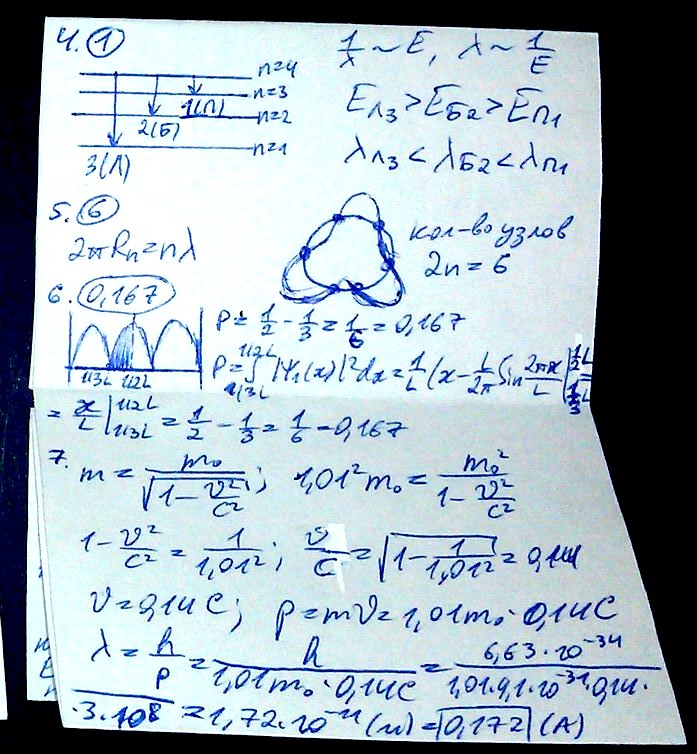 4. 1
1/λ ~ E, λ ~ 1/E
n=4
n=3
1(П)
n=2
2(Б)
n=1
3(Л)
Eл3 > Eб2 > Eп1
λл3 < λб2 < λп1
5. 6
2πRn = nλ
кол-во узлов
2n = 6
6. 0,167
1/3L 1/2L
P = 1/2 - 1/3 = 1/6 = 0,167
P = ∫ 1/3L 1/2L |Ψ1(x)|² dx = 1/L (x - L/2π Sin 2πx/L | 1/2L 1/3L =
= x/L | 1/2L 1/3L = 1/2 - 1/3 = 1/6 = 0,167
7. m = m₀/√(1 - υ²/c²); 1,01² m₀ = m₀²/(1 - υ²/c²)
1 - υ²/c² = 1/1,01²; υ/c = √(1 - 1/1,01²) = 0,14
υ = 0,14 C; p = mυ = 1,01 m₀ · 0,14 C
λ = h/p = h/(1,01 m₀ · 0,14 C) = 6,63 · 10⁻³⁴/(1,01 · 9,1 · 10⁻³¹ · 0,14 ·
· 3 · 10⁸ = 1,72 · 10⁻¹¹ (м) = 0,172 (А)